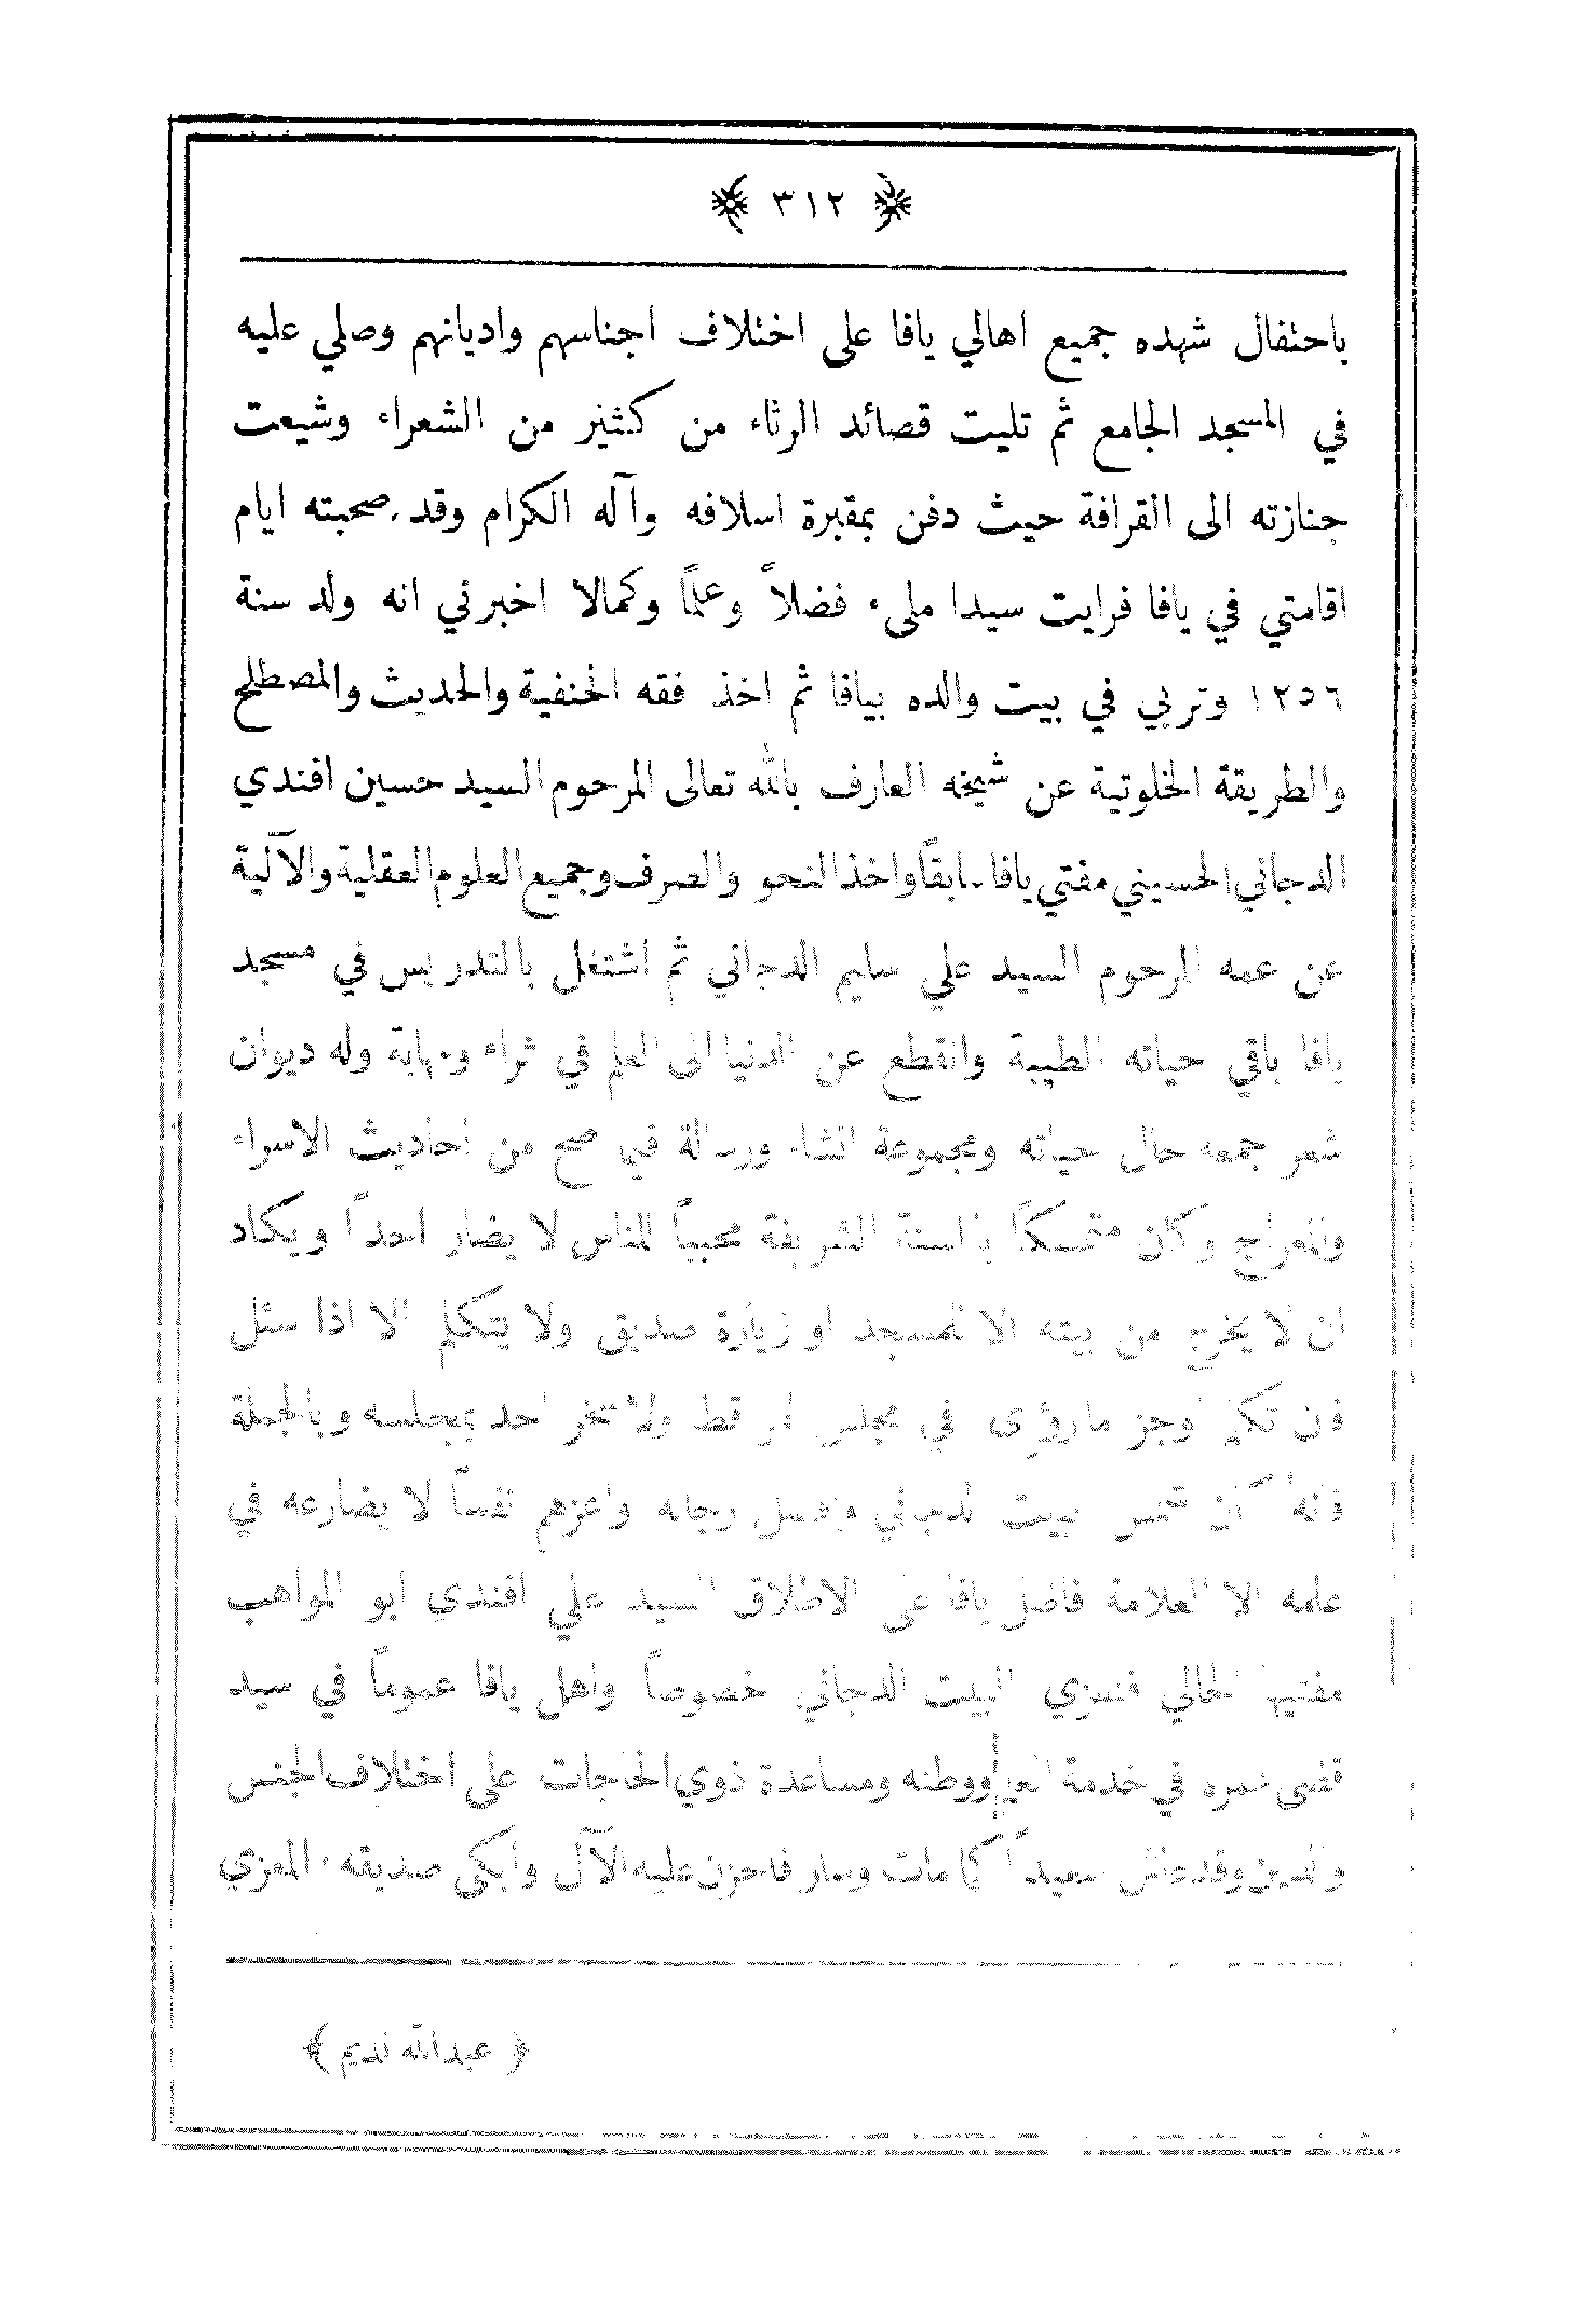 ﴿ ٣١٢ ﴾
باحتفال شهده جميع اهالي يافا على اختلاف اجناسهم واديانهم وصلي عليه
في المسجد الجامع ثم تليت قصائد الرثاء من كثير من الشعراء وشيعت
جنازته الى القرافة حيث دفن بمقبرة اسلافه وآله الكرام وقد صحبته ايام
اقامتي في يافا فرايت سيدا ملىء فضلاً وعلماً وكمالا اخبرني انه ولد سنة
١٢٥٦ وتربي في بيت والده بيافا ثم اخذ فقه الحنفية والحديث والمصطلح
والطريقة الخلوتية عن شيخه العارف بالله تعالى المرحوم السيد حسين افندي
الدجاني الحسيني مفتي يافا سابقاً واخذ النحو والصرف وجميع العلوم العقلية والآلية
عن عمه المرحوم السيد علي سليم الدجاني ثم اشتغل بالتدريس في مسجد
يافا باقي حياته الطيبة وانقطع عن الدنيا الى العلم في ثراء ومهابة وله ديوان
شعر جمعه حال حياته ومجموعة انشاء ورسالة في صح من احاديث الاسراء
والمعراج وكان متمسكاً بالسنة الشريفة محبباً للناس لا يضار احداً ويكاد
ان لا يخرج من بيته الا للمسجد او زيارة صديق ولا يتكلم الا اذا سئل
فان تكلم اوجز ما رؤى في مجلس قط ولا احد بمجلسه وبالجملة
فانه كان بيت الدجاني رجاله واعزهم نفساً لا يضارعه في
علمه الا العلامة فاضل يافا على الاطلاق السيد علي افندي ابو المواهب
مفتيها الحالي فنعزي البيت الدجاني خصوصاً واهل يافا عموماً في سيد
قضى عمره في خدمة العلم ووطنه ومساعدة ذوي الحاجات على اختلاف الجنس
والدين وقد عاش سعيداً كما مات وسار فاحزن عليه الآل وابكى صديقه المعزي
﴿ عبدالله نديم ﴾